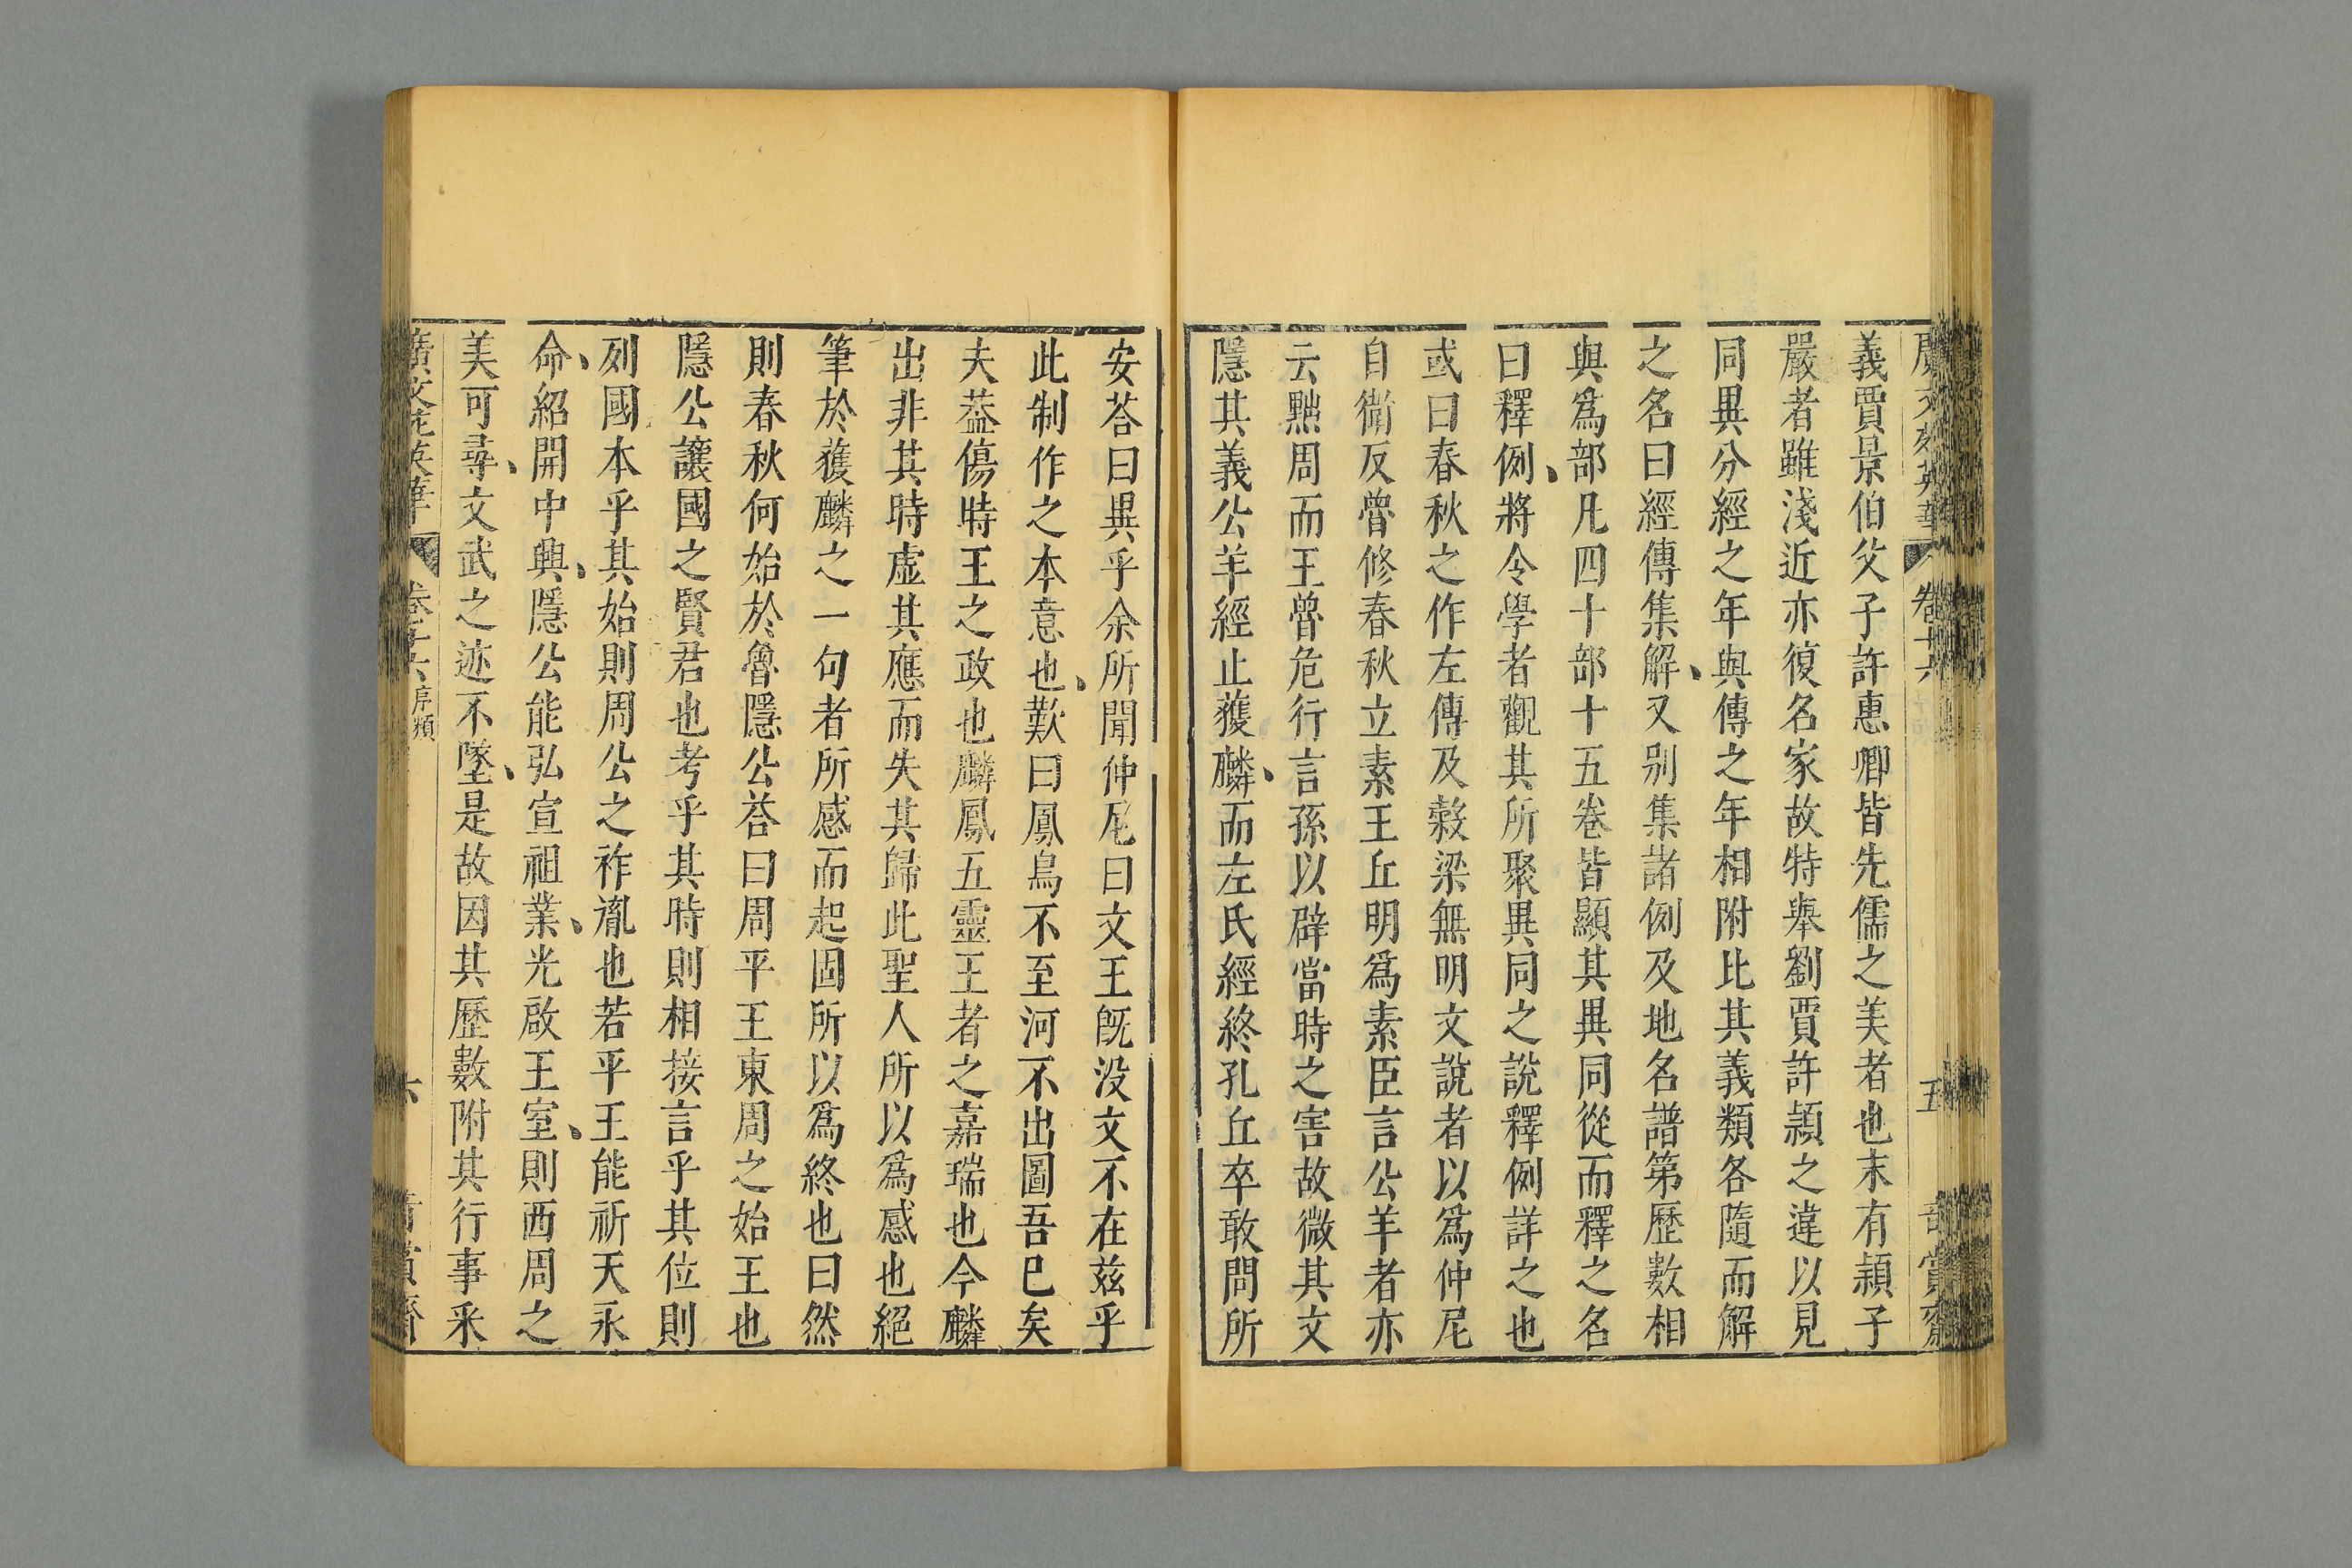 義賈景伯父子許惠卿皆先儒之美者也末有穎子
嚴者雖淺近亦復名家故特舉劉賈許穎之違以見
同異分經之年與傳之年相附比其義類各隨而解
之名曰經傳集解又别集諸例及地名譜第歷數相
與爲部凡四十部十五卷皆顯其異同從而釋之名
曰釋例將令學者觀其所聚異同之說釋例詳之也
或曰春秋之作左傳及穀梁無明文說者以爲仲尼
自衛反魯修春秋立素王丘明爲素臣言公羊者亦
云黜周而王魯危行言孫以辟當時之害故微其文
隱其義公羊經止獲麟而左氏經終孔丘卒敢問所
安荅曰異乎余所聞仲尼曰文王旣没文不在兹乎
此制作之本意也歎曰鳳鳥不至河不出圖吾已矣
夫葢傷時王之政也麟鳳五靈王者之嘉瑞也今麟
出非其時虛其應而失其歸此聖人所以爲感也絕
筆於獲麟之一句者所感而起固所以爲終也曰然
則春秋何始於魯隱公荅曰周平王東周之始王也
隱公讓國之賢君也考乎其時則相接言乎其位則
列國本乎其始則周公之祚胤也若平王能祈天永
命紹開中興隱公能弘宣祖業光啟王室則西周之
美可尋文武之迹不墜是故因其歷數附其行事采
廣文苑英華 卷十六 序類 六